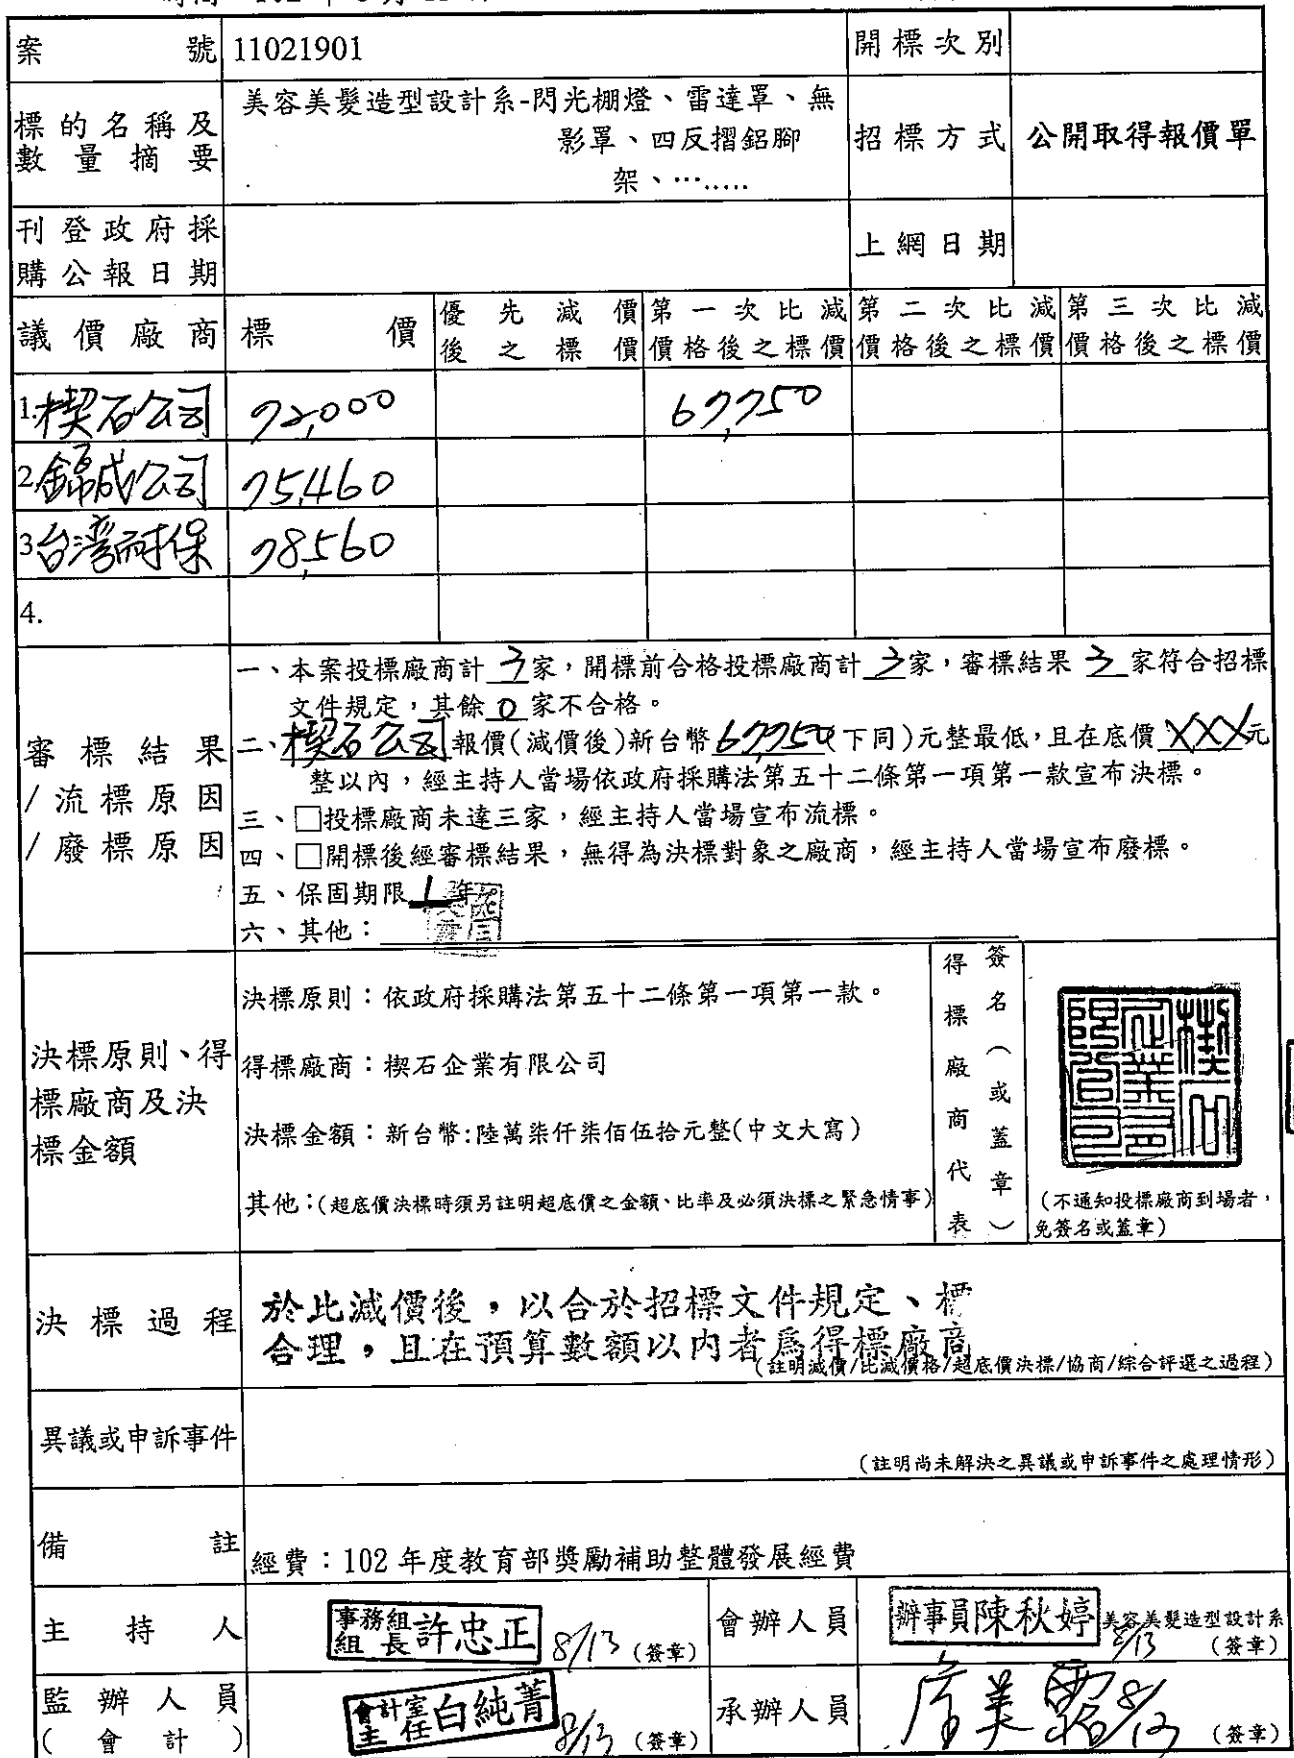 案號 11021901 開標次別
標的名稱及數量摘要 美容美髮造型設計系-閃光棚燈、雷達罩、無
影罩、四反摺鋁腳
架、…..... 招標方式 公開取得報價單
刊登政府採購公報日期 上網日期
議價廠商 標價 優先減價後之標價 第一次比減價格後之標價 第二次比減價格後之標價 第三次比減價格後之標價
1.楔石公司 72,000 67,750
2.錦成公司 75,460
3台湾耐保 78,560
4.
審標結果
/流標原因
/廢標原因
一、本案投標廠商計 3 家，開標前合格投標廠商計 3 家，審標結果 3 家符合招標
文件規定，其餘 0 家不合格。
二、楔石公司報價(減價後)新台幣 67,750 (下同)元整最低，且在底價 XXX 元
整以內，經主持人當場依政府採購法第五十二條第一項第一款宣布決標。
三、□投標廠商未達三家，經主持人當場宣布流標。
四、□開標後經審標結果，無得為決標對象之廠商，經主持人當場宣布廢標。
五、保固期限 1 年
六、其他：
決標原則、得
標廠商及決
標金額
決標原則：依政府採購法第五十二條第一項第一款。
得標廠商：楔石企業有限公司
決標金額：新台幣:陸萬柒仟柒佰伍拾元整(中文大寫)
其他：(超底價決標時須另註明超底價之金額、比率及必須決標之緊急情事)
得標廠商代表
簽名（或蓋章）
楔石企業有限公司
(不通知投標廠商到場者，
免簽名或蓋章)
決標過程
於比減價後，以合於招標文件規定、標
合理，且在預算數額以內者為得標廠商
(註明減價/比減價格/超底價決標/協商/綜合評選之過程)
異議或申訴事件
(註明尚未解決之異議或申訴事件之處理情形)
備註
經費：102 年度教育部獎勵補助整體發展經費
主持人 事務組組長 許忠正 8/13 (簽章) 會辦人員 辦事員陳秋婷 美容美髮造型設計系 8/13 (簽章)
監辦人員(會計) 會計室主任 白純菁 8/13 (簽章) 承辦人員 美 8/13 (簽章)